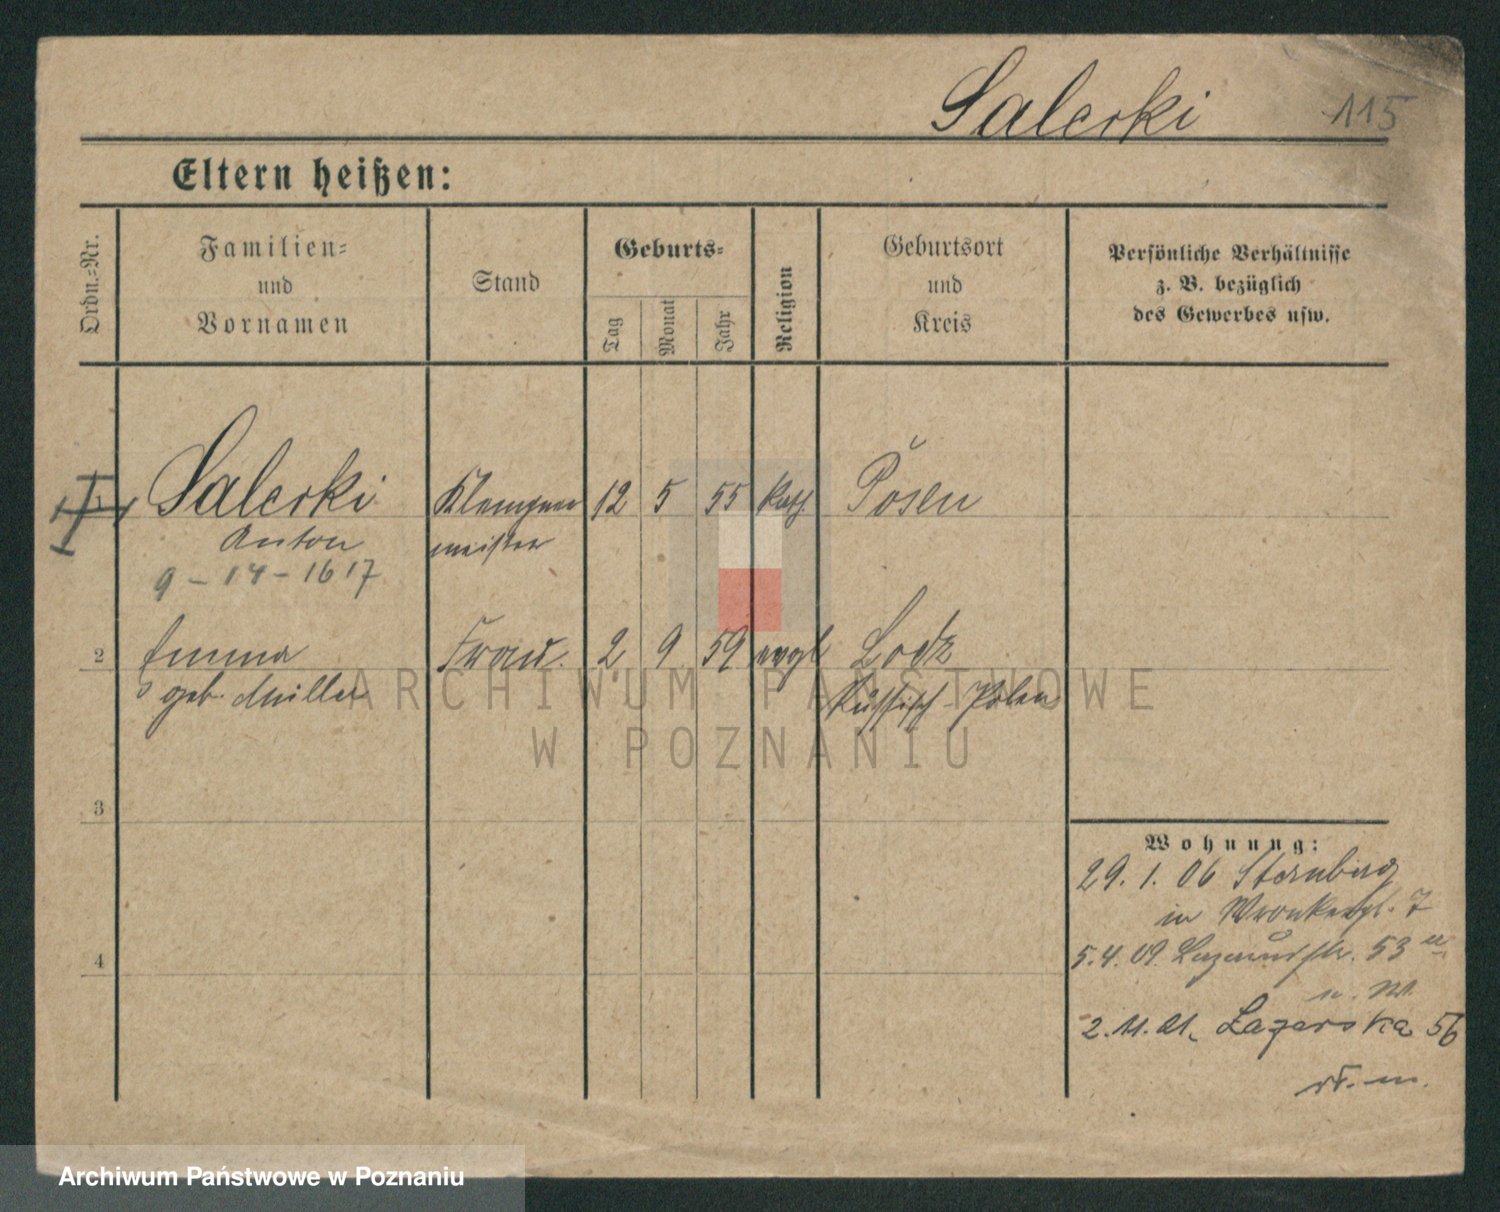 Salerki 115
Eltern heißen:
Ordn.=Nr.
Familien=
und
Vornamen
Stand
Geburts=
Tag
Monat
Jahr
Religion
Geburtsort
und
Kreis
Persönliche Verhältnisse
z. B. bezüglich
des Gewerbes usw.
1 Salerki Klempner 12 5 55 kath Posen
Anton meister
9 - 14 - 16 17
2 Emma Frau 2 9 59 evgl Lodz
geb. Müller Russisch-Polen
3
4
Wohnung:
29. 1. 06 Sternberg
in Wronkerpl. 7
5. 4. 09. Lazarusstr. 53
2. 11. 21. Lazarska 56
ARCHIWUM PAŃSTWOWE
W POZNANIU
Archiwum Państwowe w Poznaniu